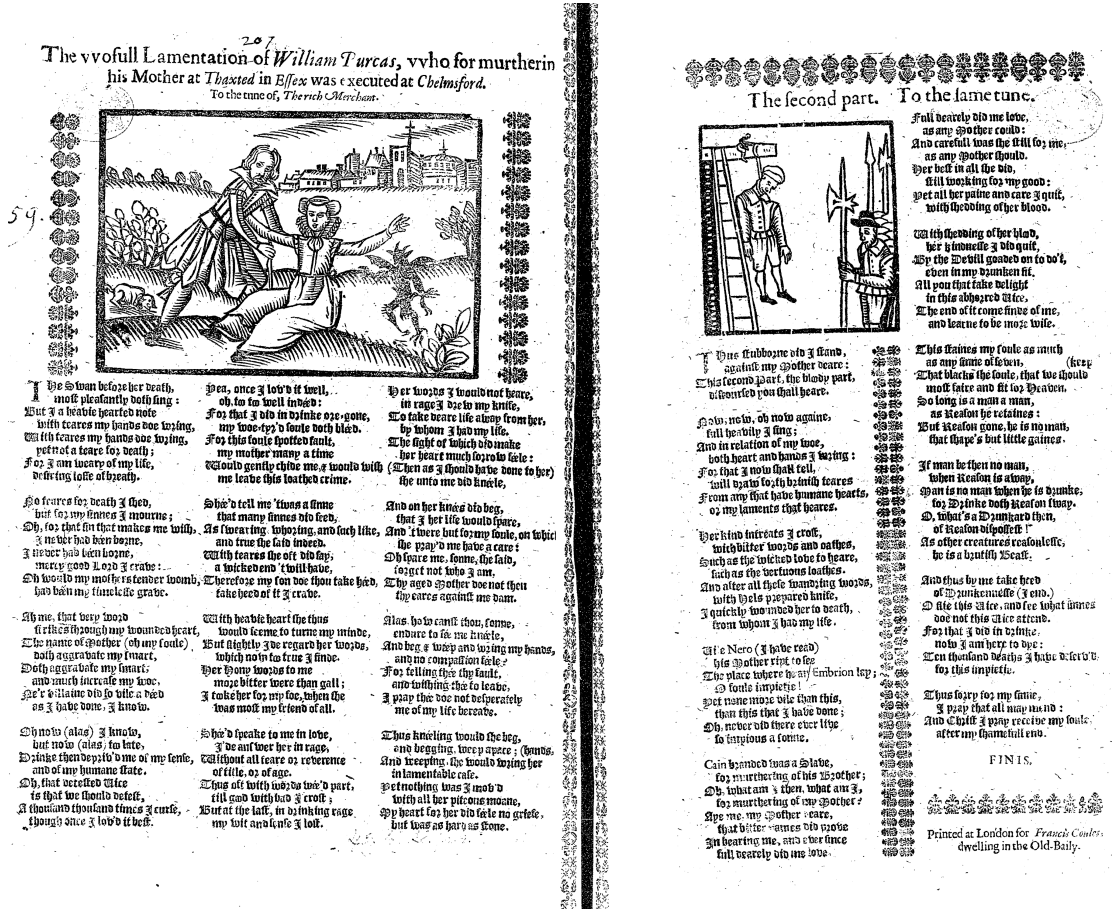 207
The vvofull Lamentation of William Purcas, vvho for murtherin
his Mother at Thaxted in Essex was executed at Chelmsford.
To the tune of, The rich Merchant.
59.
THe Swan before her death,
most pleasantly doth sing:
But I a heavie hearted note
with teares my hands doe wring,
With teares my hands doe wring,
yet not a teare for death;
For I am weary of my life,
desiring losse of breath.
No teares for death I shed,
but for my sinnes I mourne;
Oh, for that sin that makes me wish,
I never had beene borne,
I never had beene borne,
mercy good Lord I crave:
Oh would my mothers tender womb,
had been my timelesse grave.
Ah me, that very word
strikes through my wounded heart,
The name of Mother (oh my soule)
doth aggravate my smart,
Doth aggravate my smart;
and much increase my woe,
Ne'r villaine did so vile a deed
as I have done, I know.
Oh now (alas) I know,
but now (alas) to late,
Drinke then depriv'd me of my sense,
and of my humane state.
Oh, that detested Vice
is that we should detest,
A thousand thousand times I curse,
though once I lov'd it best.
Yea, once I lov'd it well,
oh to to well indeed:
For that I did in drinke ore-gone,
my woe-tyr'd soule doth bleed.
For this foule spotted fault,
my mother many a time
Would gently chide me, & would wish
me leave this loathed crime.
Shee'd tell me 'twas a sinne
that many sinnes did feed,
As swearing, whoring, and such like,
and true she said indeed.
With teares she oft did say,
a wicked end 'twill have,
Therefore my son doe thou take heed,
take heed of it I crave.
With heavie heart she thus
would seeme to turne my minde,
But slightly I de regard her words,
which now to true I finde.
Her Hony words to me
more bitter were than gall;
I tooke her for my foe, when she
was most my friend of all.
Shee'd speake to me in love,
I'de answer her in rage,
Without all feare or reverence
of title, or of age.
Thus oft with words wee'd part,
till good with bad I crost;
But at the last, in drinking rage
my wit and sense I lost.
Her words I would not heare,
in rage I drew my knife,
To take deare life away from her,
by whom I had my life.
The sight of which did make
her heart much sorrow feele:
(Then as I should have done to her)
she unto me did kneele,
And on her knees did beg,
that I her life would spare,
And it were but for my soule, on which
she pray'd me have a care:
Oh spare me, sonne, she said,
forget not who I am,
Thy aged Mother doe not then
thy eares against me dam.
Alas, how canst thou, sonne,
endure to see me kneele,
And beg & weep and wring my hands,
and no compassion feele?
For telling thee thy fault,
and wishing thee to leave,
I pray thee doe not desperately
me of my life bereave.
Thus kneeling would she beg,
and begging, weep apace; (hands,
And weeping, she would wring her
in lamentable case.
Yet nothing was I mov'd
with all her piteous moane,
My heart for her did feele no griefe,
but was as hard as stone.
The second part. To the same tune.
THus stubborne did I stand,
against my Mother deare:
This second Part, the bloody part,
discoursed you shall heare.
Now, now, oh now againe,
full heavily I sing;
And in relation of my woe,
both heart and hands I wring:
For that I now shall tell,
will draw forth brinish teares
From any that have humane hearts,
or my laments that heares.
Her kind intreats I crost,
with bitter words and oathes,
Such as the wicked love to heare,
such as the vertuous loathes.
And after all these wandring words,
with Hels prepared knife,
I quickly wounded her to death,
from whom I had my life.
Vile Nero (I have read)
his Mother ript to see
The place where he an Embrion lay;
O foule impietie!
Yet none more vile than this,
than this that I have done;
Oh, never did there ever live
so impious a sonne.
Cain branded was a Slave,
for murthering of his Brother;
Oh, what am I then, what am I,
for murthering of my Mother?
Aye me, my Mother deare,
that bitter paines did prove
In bearing me, and ever since
full dearely did me love.
Full dearely did me love,
as any Mother could:
And carefull was she still for me,
as any Mother should.
Her best in all she did,
still working for my good:
Yet all her paine and care I quit,
with shedding of her blood.
With shedding of her blood,
her kindnesse I did quit,
By the Devill goaded on to do't,
even in my drunken fit.
All you that take delight
in this abhorred Vice,
The end of it come finde of me,
and learne to be more wise.
This staines my soule as much
as any sinne of seven, (keep
That blacks the soule, that we should
most faire and fit for Heaven.
So long is a man a man,
as Reason he retaines:
But Reason gone, he is no man,
that shape's but little gaines.
If man be then no man,
when Reason is away,
Man is no man when he is drunke,
for Drinke doth Reason sway.
O, what's a Drunkard then,
of Reason dispossest!
As other creatures reasonlesse,
he is a brutish Beast.
And thus by me take heed
of Drunkennesse (I end.)
O flie this Vice, and see what sinnes
doe not this Vice attend.
For that I did in drinke,
now I am here to dye:
Ten thousand deaths I have deserv'd
for this impietie.
Thus sorry for my sinne,
I pray that all may mend:
And Christ I pray receive my soule,
after my shamefull end.
FINIS.
Printed at London for Francis Coules,
dwelling in the Old-Baily.